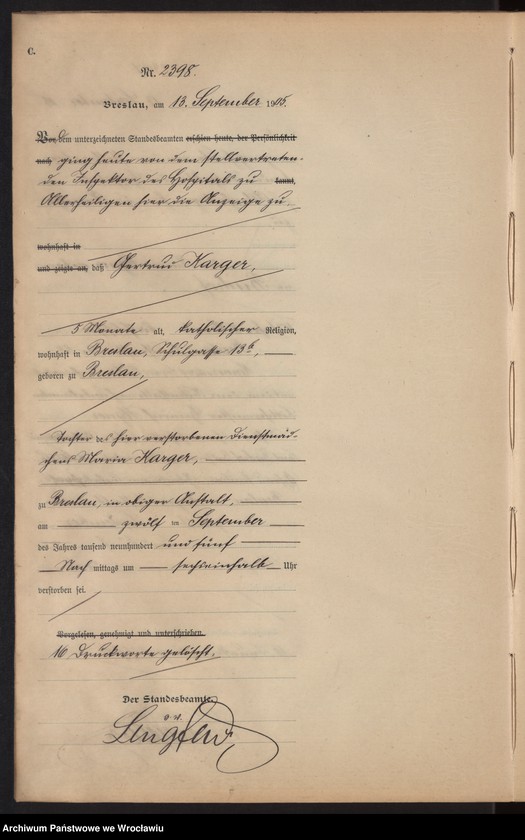 C.
Nr. 2398.
Breslau, am 13. September 1905.
Vor dem unterzeichneten Standesbeamten erschien heute, der Persönlichkeit
nach ging heute von dem stellvertreten-
den Inspektor des Hospitals zu kannt,
Allerheiligen hier die Anzeige zu,
wohnhaft in
und zeigte an, daß Gertrud Karger,
5 Monate alt, katholischer Religion,
wohnhaft in Breslau, Schulgasse 13b,
geboren zu Breslau,
Tochter des hier verstorbenen Dienstmäd-
chens Maria Karger,
zu Breslau, in obiger Anstalt,
am zwölf ten September
des Jahres tausend neunhundert und fünf
Nach mittags um sechseinhalb Uhr
verstorben sei.
Vorgelesen, genehmigt und unterschrieben
16 Druckworte gelöscht.
Der Standesbeamte.
Archiwum Państwowe we Wrocławiu